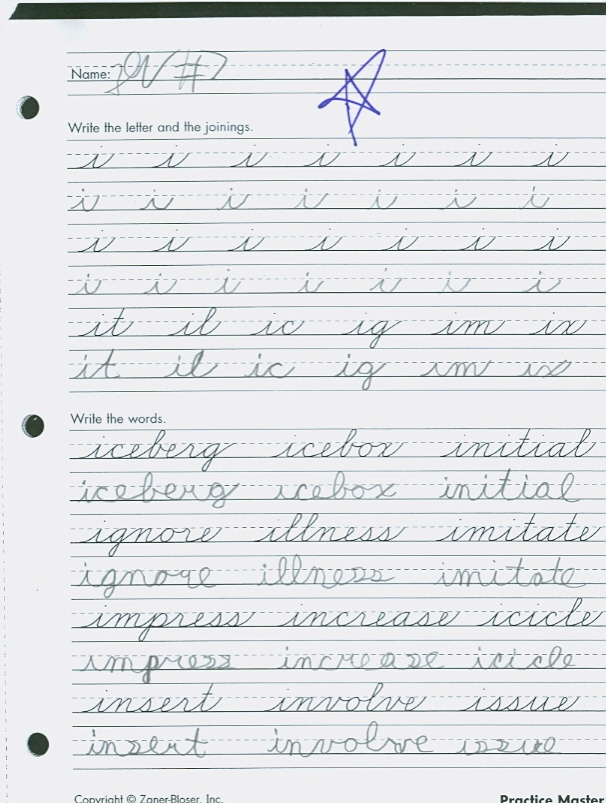 Name: #7
Write the letter and the joinings.
i i i i i i i
i i i i i i i
i i i i i i i
i i i i i i i
it il ic ig im ix
it il ic ig im ix
Write the words.
iceberg icebox initial
iceberg icebox initial
ignore illness imitate
ignore illness imitate
impress increase icicle
impress increase icicle
insert involve issue
insert involve issue
Copyright © Zaner-Bloser, Inc. Practice Master